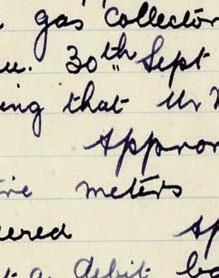 gas collector
30th Sept
ing that Mr
Appro
meters
ered
a debit